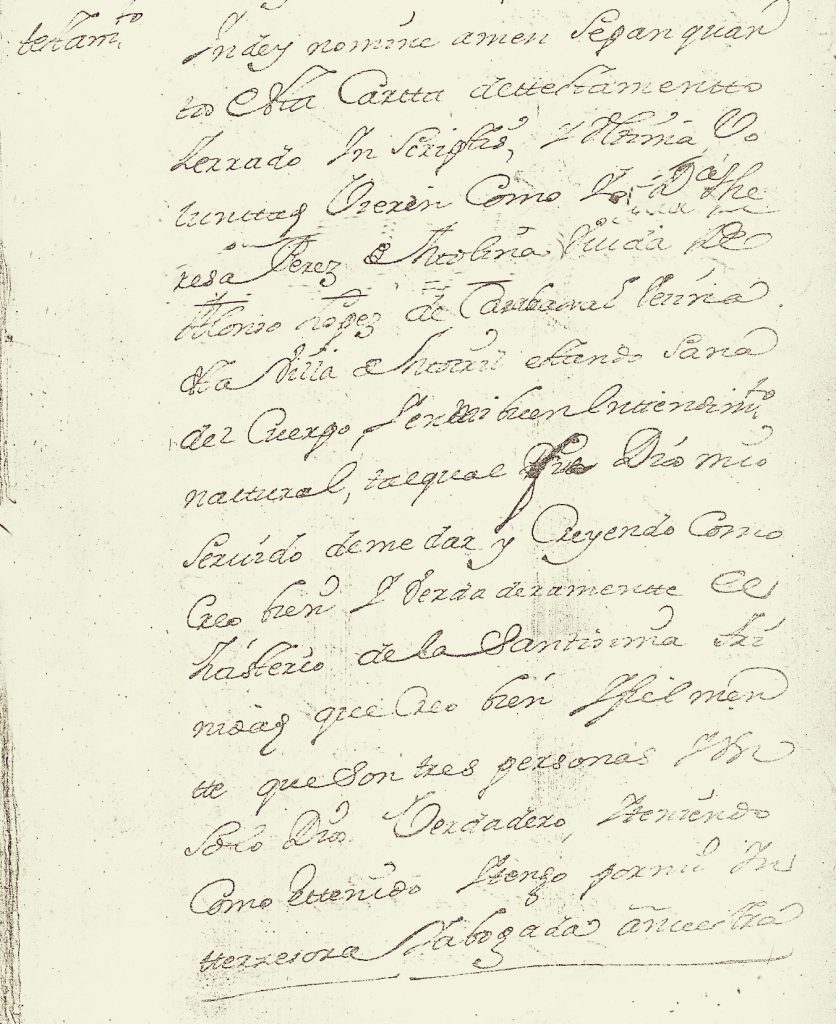 testam.to
In dey nomine amen Sepan quan
to esta Cartta dettestamentto
Zerrado In Scriptis, Y Ultima Vo
lunttaq Vieren Como Yo Da The
resa Perez de Molina Viuda De
Alonso Lopez de Carbaxal Vecina
desta Villa de Motril estando Sana
del Cuerpo, Y en mi buen Enttendim.to
natural, tal qual fue Dios mio
Servido de me dar y Creyendo Como
Creo bien Y Verdaderamentte El
Misterio de la Santisima Tri
nidaq que Creo bien Y fielmen
tte que Son tres personas Y Un
Solo Dios Verdadero, Y teniendo
Como e ttenido Y tengo por mi In
tterzesora Y abogada a nuestra